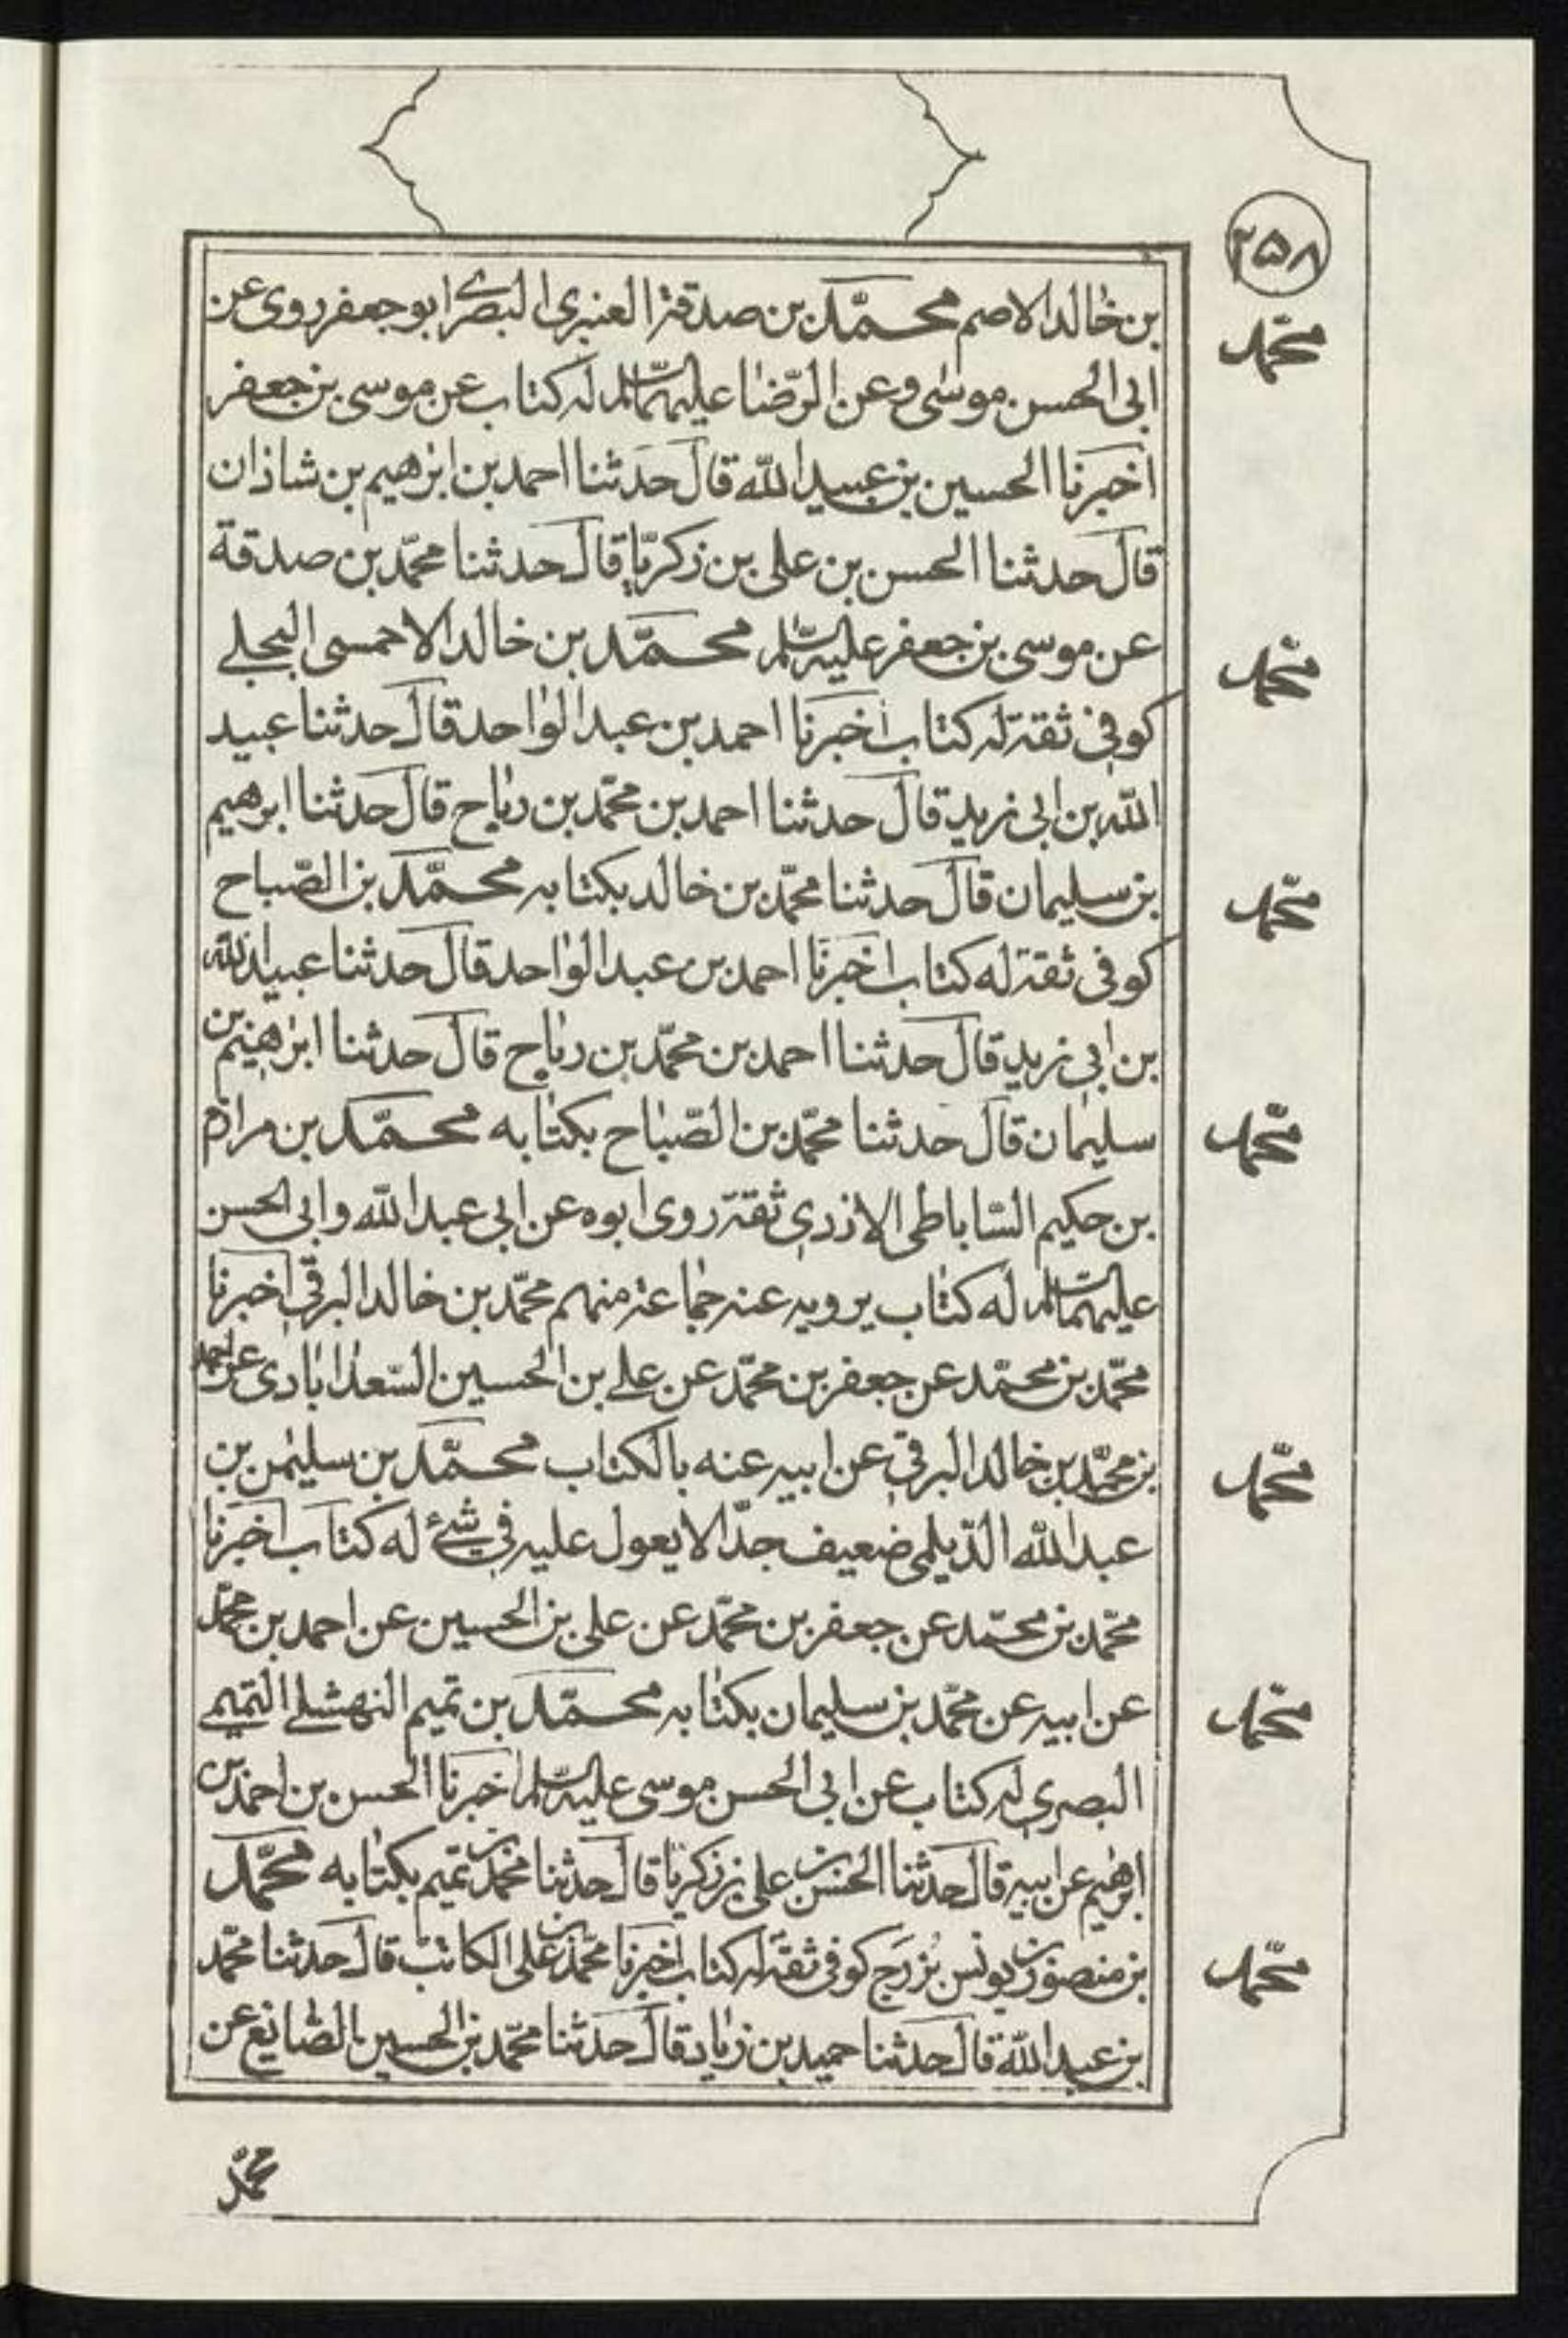 ٢٥٨
بن خالد الاصم محمّد بن صدقة العنبرى البصرى ابو جعفر روى عن
محمّد
ابى الحسن موسى وعن الرّضا عليهما السّلم له كتاب عن موسى بن جعفر
اخبرنا الحسين بن عبيد الله قال حدثنا احمد بن ابرهيم بن شاذان
قال حدثنا الحسن بن على بن زكريّا قال حدثنا محمّد بن صدقة
عن موسى بن جعفر عليه السّلم محمّد بن خالد الاحمسى البجلے
محمّد
كوفى ثقة له كتاب اخبرنا احمد بن عبد الواحد قال حدثنا عبيد
الله بن ابى زيد قال حدثنا احمد بن محمّد بن رباح قال حدثنا ابرهيم
بن سليمان قال حدثنا محمّد بن خالد بكتابه محمّد بن الصّباح
محمّد
كوفى ثقة له كتاب اخبرنا احمد بن عبد الواحد قال حدثنا عبيد الله
بن ابى زيد قال حدثنا احمد بن محمّد بن رباح قال حدثنا ابرهيم بن
سليمان قال حدثنا محمّد بن الصّباح بكتابه محمّد بن مرازم
محمّد
بن حكيم السّاباطى الازدى ثقة روى ابوه عن ابى عبد الله وابى الحسن
عليهما السّلم له كتاب يرويه عنه جماعة منهم محمّد بن خالد البرقى اخبرنا
محمّد بن محمّد عن جعفر بن محمّد عن علے بن الحسين السّعدابادى عن احمد
بن محمّد بن خالد البرقى عن ابيه عنه بالكتاب محمّد بن سليمن بن
محمّد
عبد الله الدّيلمى ضعيف جدّا لا يعول عليه فى شئ له كتاب اخبرنا
محمّد بن محمّد عن جعفر بن محمّد عن على بن الحسين عن احمد بن محمّد
عن ابيه عن محمّد بن سليمان بكتابه محمّد بن تميم النهشلے التميمے
محمّد
البصرى له كتاب عن ابى الحسن موسى عليه السّلم اخبرنا الحسن بن احمد بن
ابرهيم عن ابيه قال حدثنا الحسن بن على بن زكريا قال حدثنا محمّد بن تميم بكتابه محمّد
بن منصور بن يونس بزرج كوفى ثقة له كتاب اخبرنا محمّد بن على الكاتب قال حدثنا محمّد
محمّد
بن عبد الله قال حدثنا حميد بن زياد قال حدثنا محمّد بن الحسين الصّايغ عن
محمّد